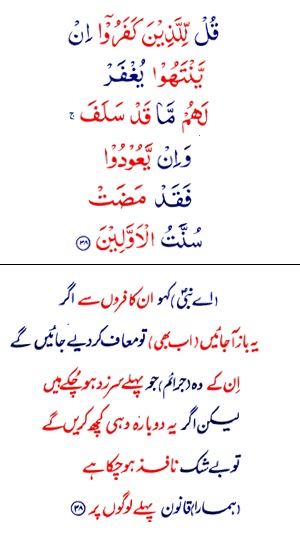 قُلْ لِّلَّذِيْنَ كَفَرُوْٓا اِنْ
يَّنْتَهُوْا يُغْفَرْ
لَهُمْ مَّا قَدْ سَلَفَ ۚ
وَاِنْ يَّعُوْدُوْا
فَقَدْ مَضَتْ
سُنَّتُ الْاَوَّلِيْنَ ﴿۳۸﴾
(اے نبیؐ) کہو ان کافروں سے اگر
یہ باز آجائیں (اب بھی) تو معاف کردیے جائیں گے
اِن کے وہ (جرائم) جو پہلے سرزد ہوچُکے ہیں
لیکن اگر یہ دوبارہ وہی کچھ کریں گے
تو بے شک نافذ ہوچکا ہے
(ہمارا) قانون پہلے لوگوں پر ﴿۳۸﴾